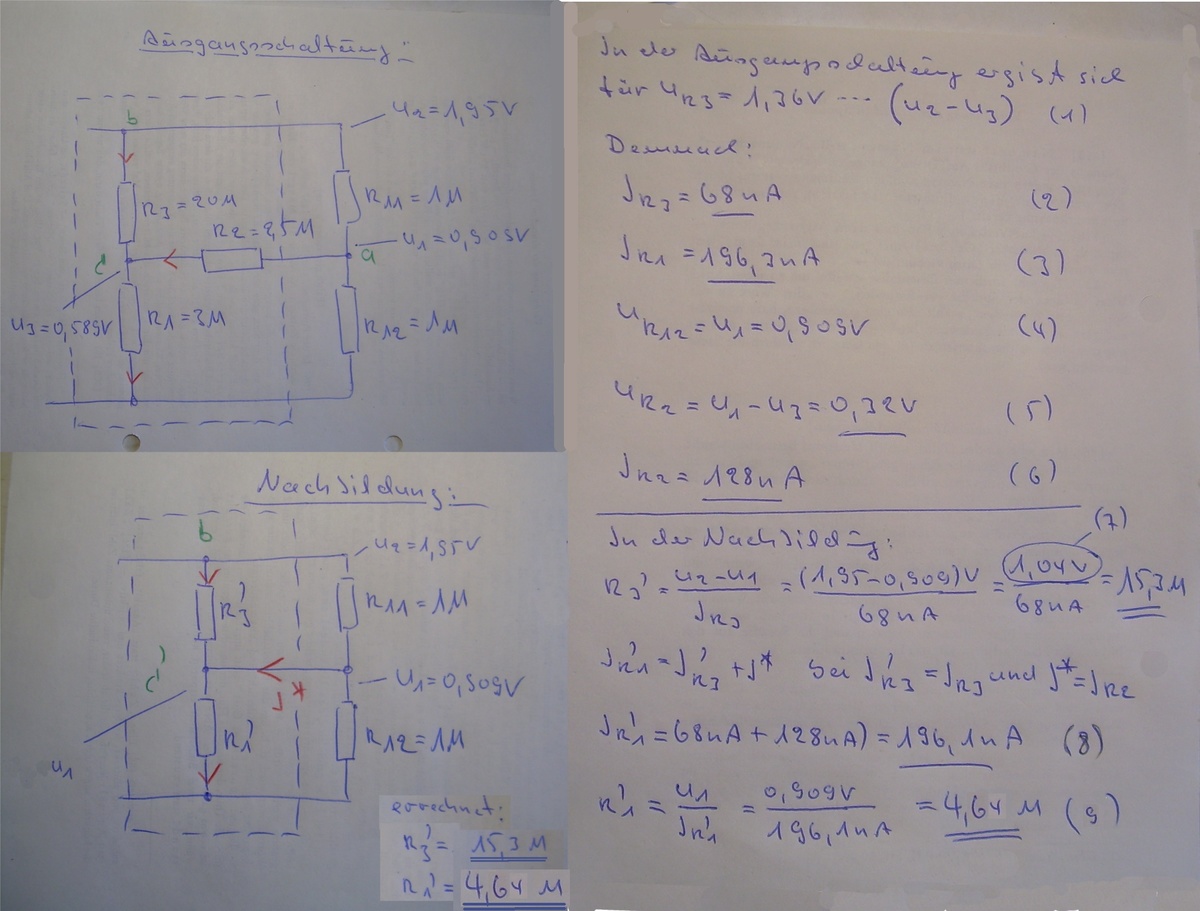 Ausgangsschaltung:
b
U2=1,95V
R3=20M
R11=1M
R2=2,5M
U1=0,909V
c
a
U3=0,589V
R1=3M
R12=1M
Nachbildung:
b
U2=1,95V
R3'
R11=1M
c'
U1=0,909V
J*
R1'
R12=1M
U1
errechnet:
R3'= 15,3 M
R1'= 4,64 M
In der Ausgangsschaltung ergibt sich
für UR3=1,36V ... (U2-U3) (1)
Demnach:
JR3=68nA (2)
JR1=196,3nA (3)
UR12=U1=0,909V (4)
UR2=U1-U3=0,32V (5)
JR2=128nA (6)
In der Nachbildung: (7)
R3'=U2-U1/JR3=(1,95-0,909)V/68nA=1,04V/68nA=15,3M
JR1'=JR3'+J* bei JR3'=JR3 und J*=JR2
JR1'=68nA+128nA)=196,1nA (8)
R1'=U1/JR1'=0,909V/196,1nA=4,64 M (9)